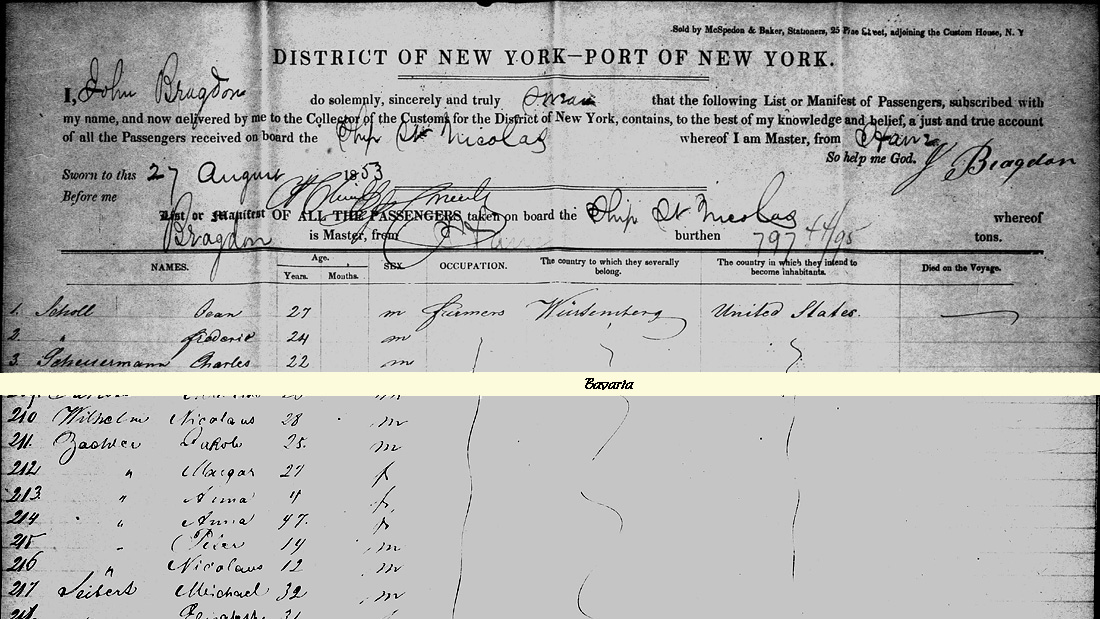 Sold by McSpedon & Baker, Stationers, 25 Pine Street, adjoining the Custom House, N. Y
DISTRICT OF NEW YORK—PORT OF NEW YORK.
I, John Bragdon do solemnly, sincerely and truly swear that the following List or Manifest of Passengers, subscribed with
my name, and now delivered by me to the Collector of the Customs for the District of New York, contains, to the best of my knowledge and belief, a just and true account
of all the Passengers received on board the Ship St Nicolas whereof I am Master, from Havre
So help me God. J Bragdon
Sworn to this 27 August 1853
Before me
List or Manifest OF ALL THE PASSENGERS taken on board the Ship St. Nicolas whereof
Bragdon is Master, from burthen 797 44/95 tons.
NAMES. Age. Years. Months. SEX. OCCUPATION. The country to which they severally belong. The country in which they intend to become inhabitants. Died on the Voyage.
1. Scholl Jean 27 m farmers Würtemberg United States.
2. " frederic 24 m
3. Scheuermann Charles 22 m
Bavaria
210 Wilhelm Nicolaus 28 m
211. Jakob 25. m
212 " Margar 27 f
213 " Anna 4 f
214 " Anna 47. f
215 " Peter 14 m
216 " Nicolaus 12 m
217 Seibert Michael 32 m
218. Elisabeth 31